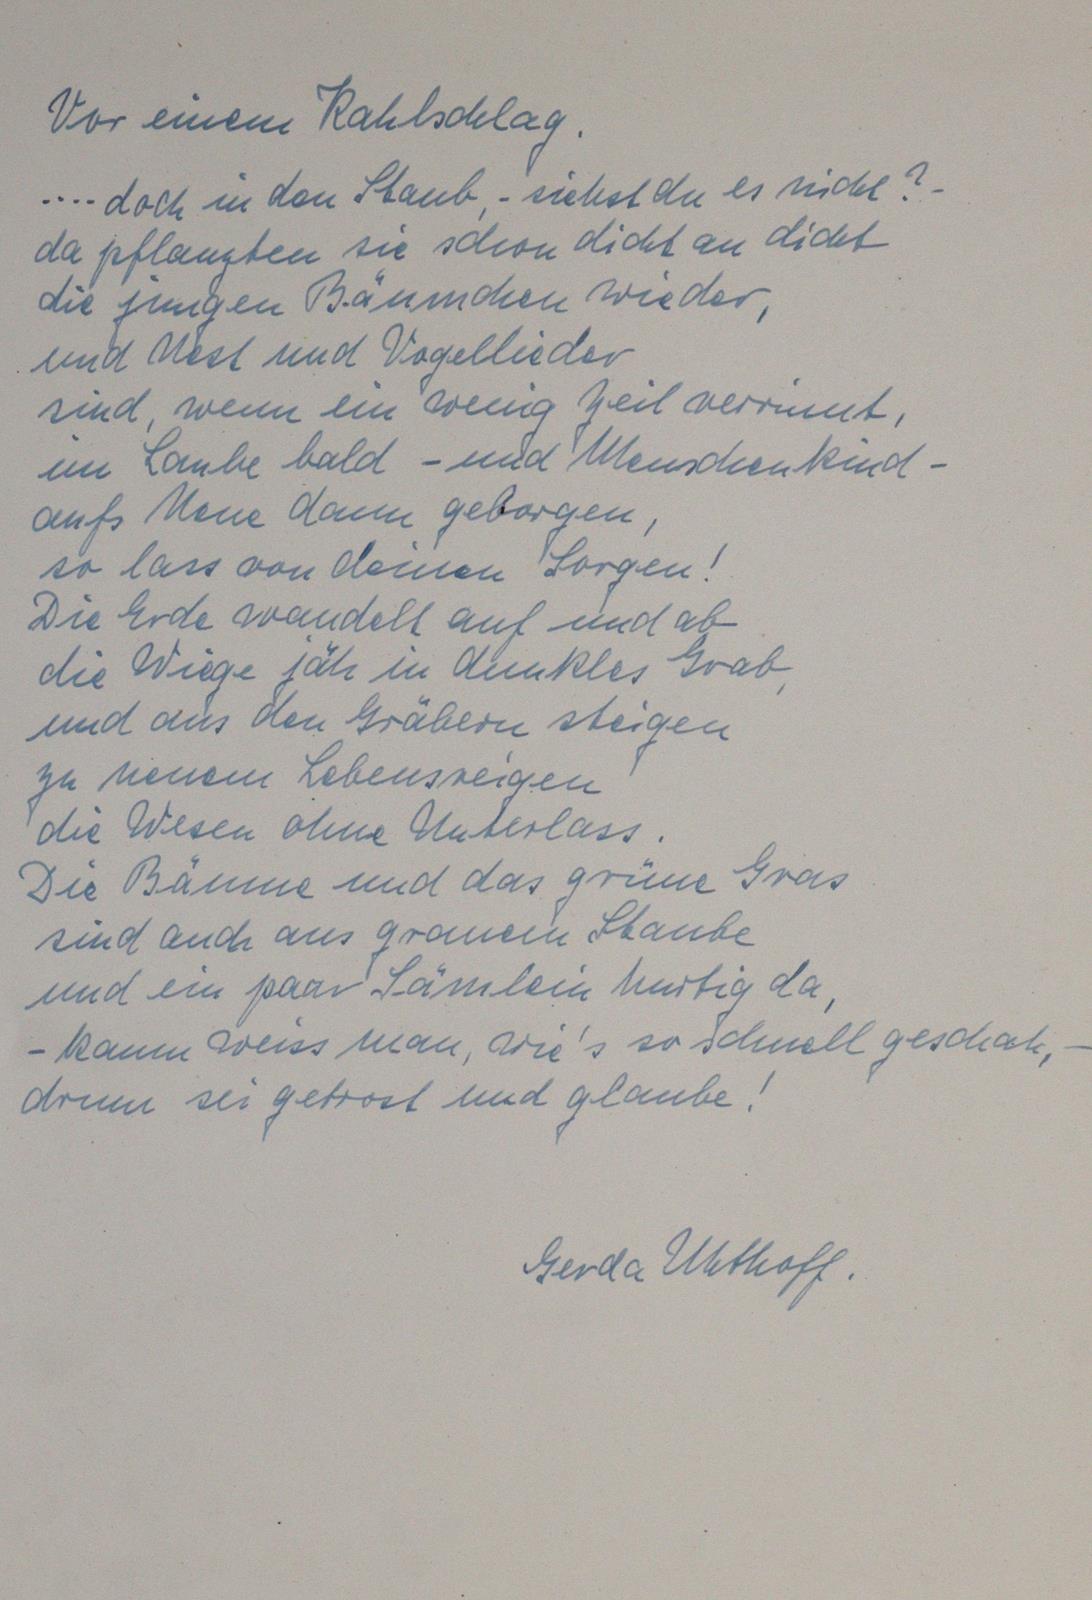 Vor einem Kahlschlag.
.... doch in den Staub, - siehst du es nicht? -
da pflanzten sie schon dicht an dicht
die jungen Bäumchen wieder,
und Nest und Vogellieder
sind, wenn ein wenig Zeit verrinnt,
im Laube bald - und Menschenkind -
aufs Neue dann geborgen,
so lass von deinen Sorgen!
Die Erde wandelt auf und ab
die Wiege jäh in dunkles Grab,
und aus den Gräbern steigen
zu neuem Lebensreigen
die Wesen ohne Unterlass.
Die Bäume und das grüne Gras
sind auch aus grauem Staube
und ein paar Sämlein hurtig da,
- kaum weiss man, wie's so schnell geschah, -
drum sei getrost und glaube!
Gerda Uhthoff.